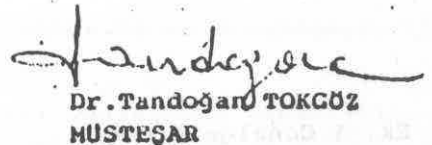 Dr.Tandoğan TOKGÖZ
MÜSTEŞAR